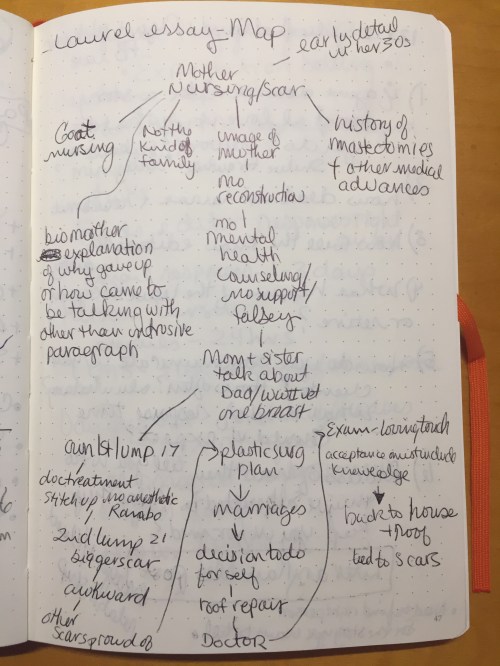 Laurel essay-Map
early detail
in her 30s
Mother
Nursing/scar
Goat
nursing
Not the
kind of
family
image of
mother
history of
mastectomies
+ other medical
advances
no
reconstruction
biomother
explanation
of why gave up
or how came to
be talking with
other than intrusive
paragraph
no
mental
health
counseling/
no support/
Palsey
Mom + sister
talk about
Dad/
one breast
own 1st lump 17
doc treatment
stitch up no anesthetic
Rambo
2nd lump 21
bigger scar
awkward
other
scars proud of
plastic surg
plan
marriages
decision to do
for self
roof repair
Doctor
Exam-loving touch
acceptance must include
knowledge
back to house
+ roof
tied to scars
47